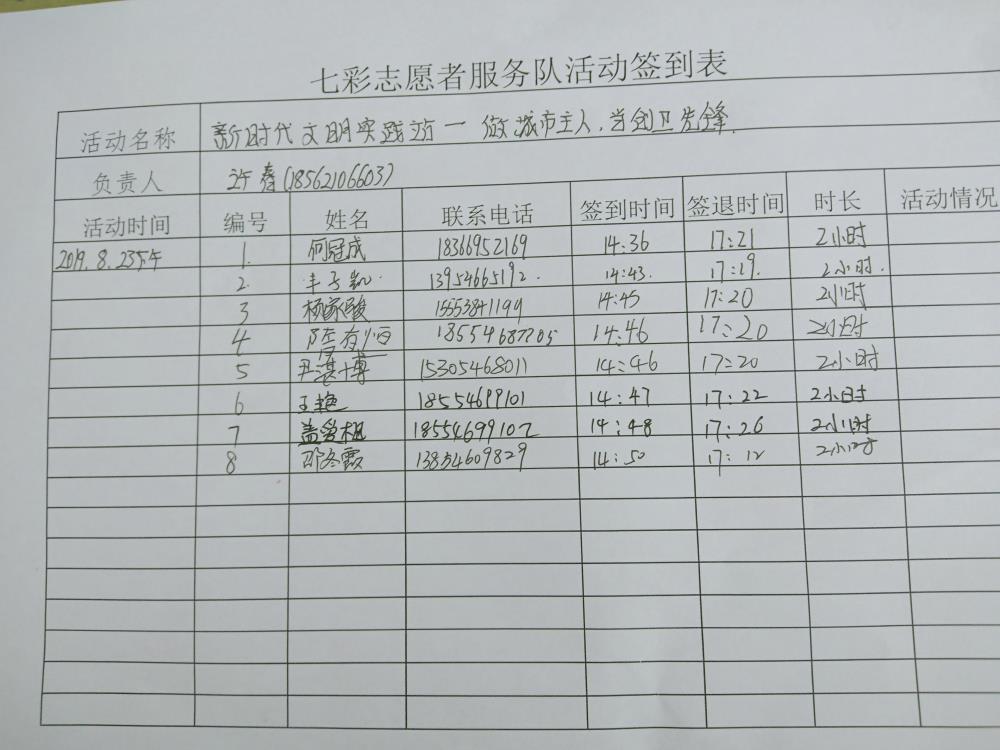 七彩志愿者服务队活动签到表
活动名称 新时代文明实践站一做城市主人,当创卫先锋.
负责人 许春(18562106603)
活动时间 编号 姓名 联系电话 签到时间 签退时间 时长 活动情况
2019.8.23下午 1. 何冠成 18366952169 14:36 17:21 2小时
2. 丰子凯. 13954665192. 14:43. 17:19. 2小时.
3 杨家骏 15553841199 14:45 17:20 2小时
4 陪有恒 18554687705 14:46 17:20 2小时
5 尹湛博 15305468011 14:46 17:20 2小时
6 王艳 18554699101 14:47 17:22 2小时
7 盖爱枝 18554699102 14:48 17:26 2小时
8 邵冬霞 13854609829 14:50 17:12 2小时